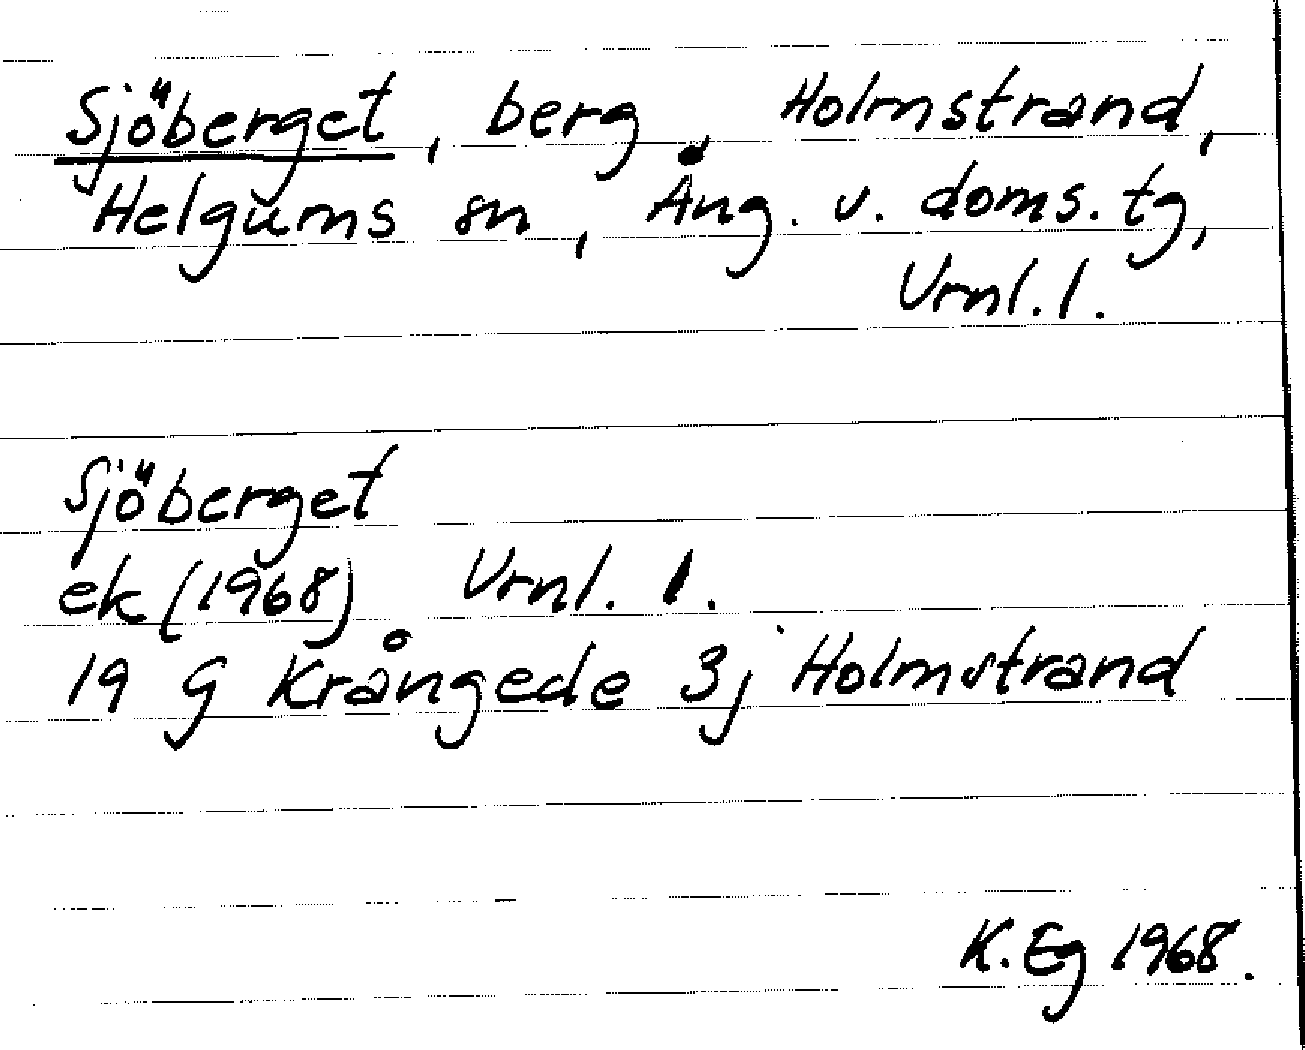 Sjöberget, berg, Holmstrand,
Helgums sn, Ång. v. doms. tg,
Vrnl. l.
Sjöberget
ek (1968) Vrnl. l.
19 G Krångede 3j Holmstrand
K. Eg 1968.